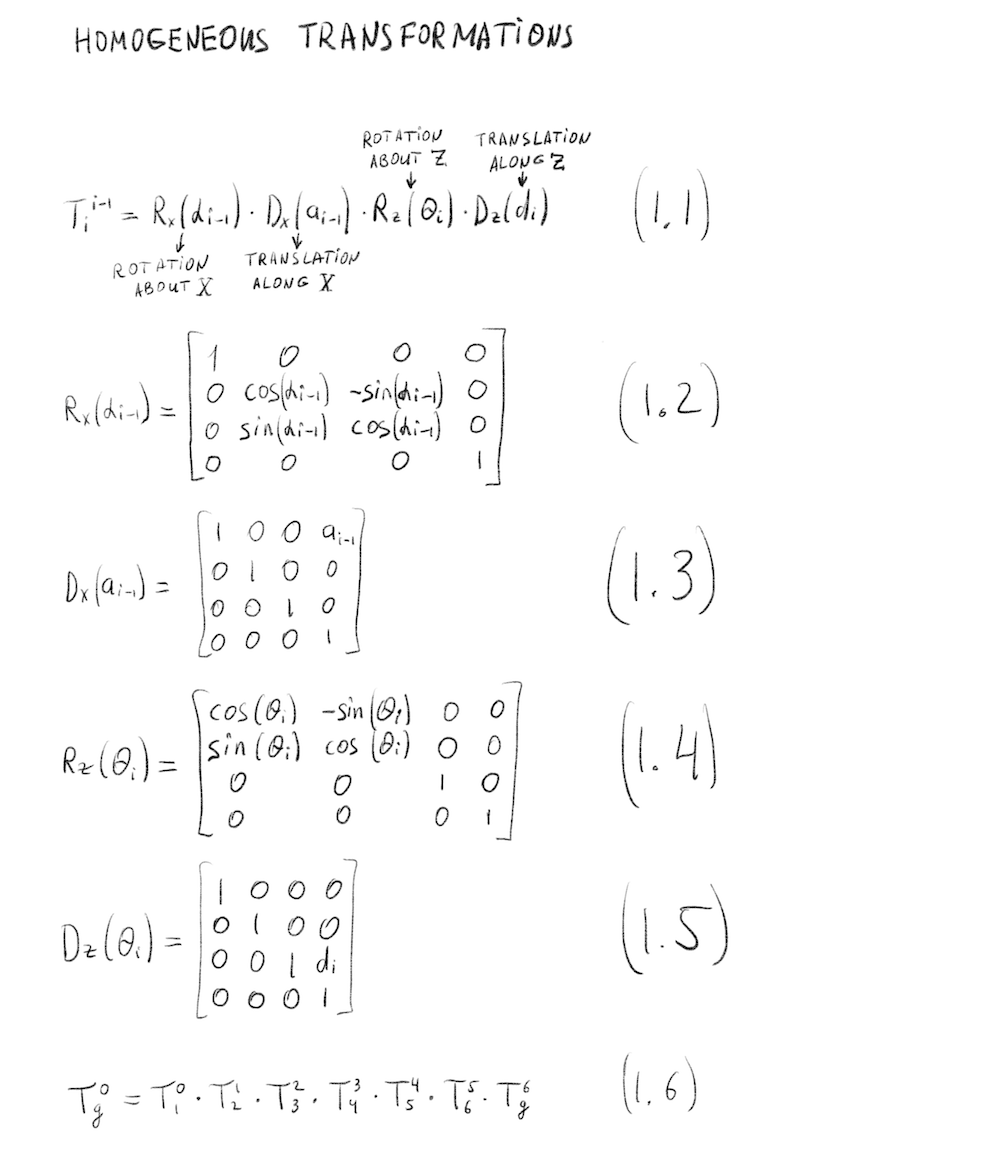 HOMOGENEOUS TRANSFORMATIONS
ROTATION ABOUT Z
TRANSLATION ALONG Z
T_i^{i-1} = R_x(α_{i-1}) · D_x(a_{i-1}) · R_z(θ_i) · D_z(d_i) (1.1)
ROTATION ABOUT X
TRANSLATION ALONG X
R_x(α_{i-1}) = (1.2)
1 0 0 0
0 cos(α_{i-1}) -sin(α_{i-1}) 0
0 sin(α_{i-1}) cos(α_{i-1}) 0
0 0 0 1
D_x(a_{i-1}) = (1.3)
1 0 0 a_{i-1}
0 1 0 0
0 0 1 0
0 0 0 1
R_z(θ_i) = (1.4)
cos(θ_i) -sin(θ_i) 0 0
sin(θ_i) cos(θ_i) 0 0
0 0 1 0
0 0 0 1
D_z(θ_i) = (1.5)
1 0 0 0
0 1 0 0
0 0 1 d_i
0 0 0 1
T_g^0 = T_1^0 · T_2^1 · T_3^2 · T_4^3 · T_5^4 · T_6^5 · T_g^6 (1.6)